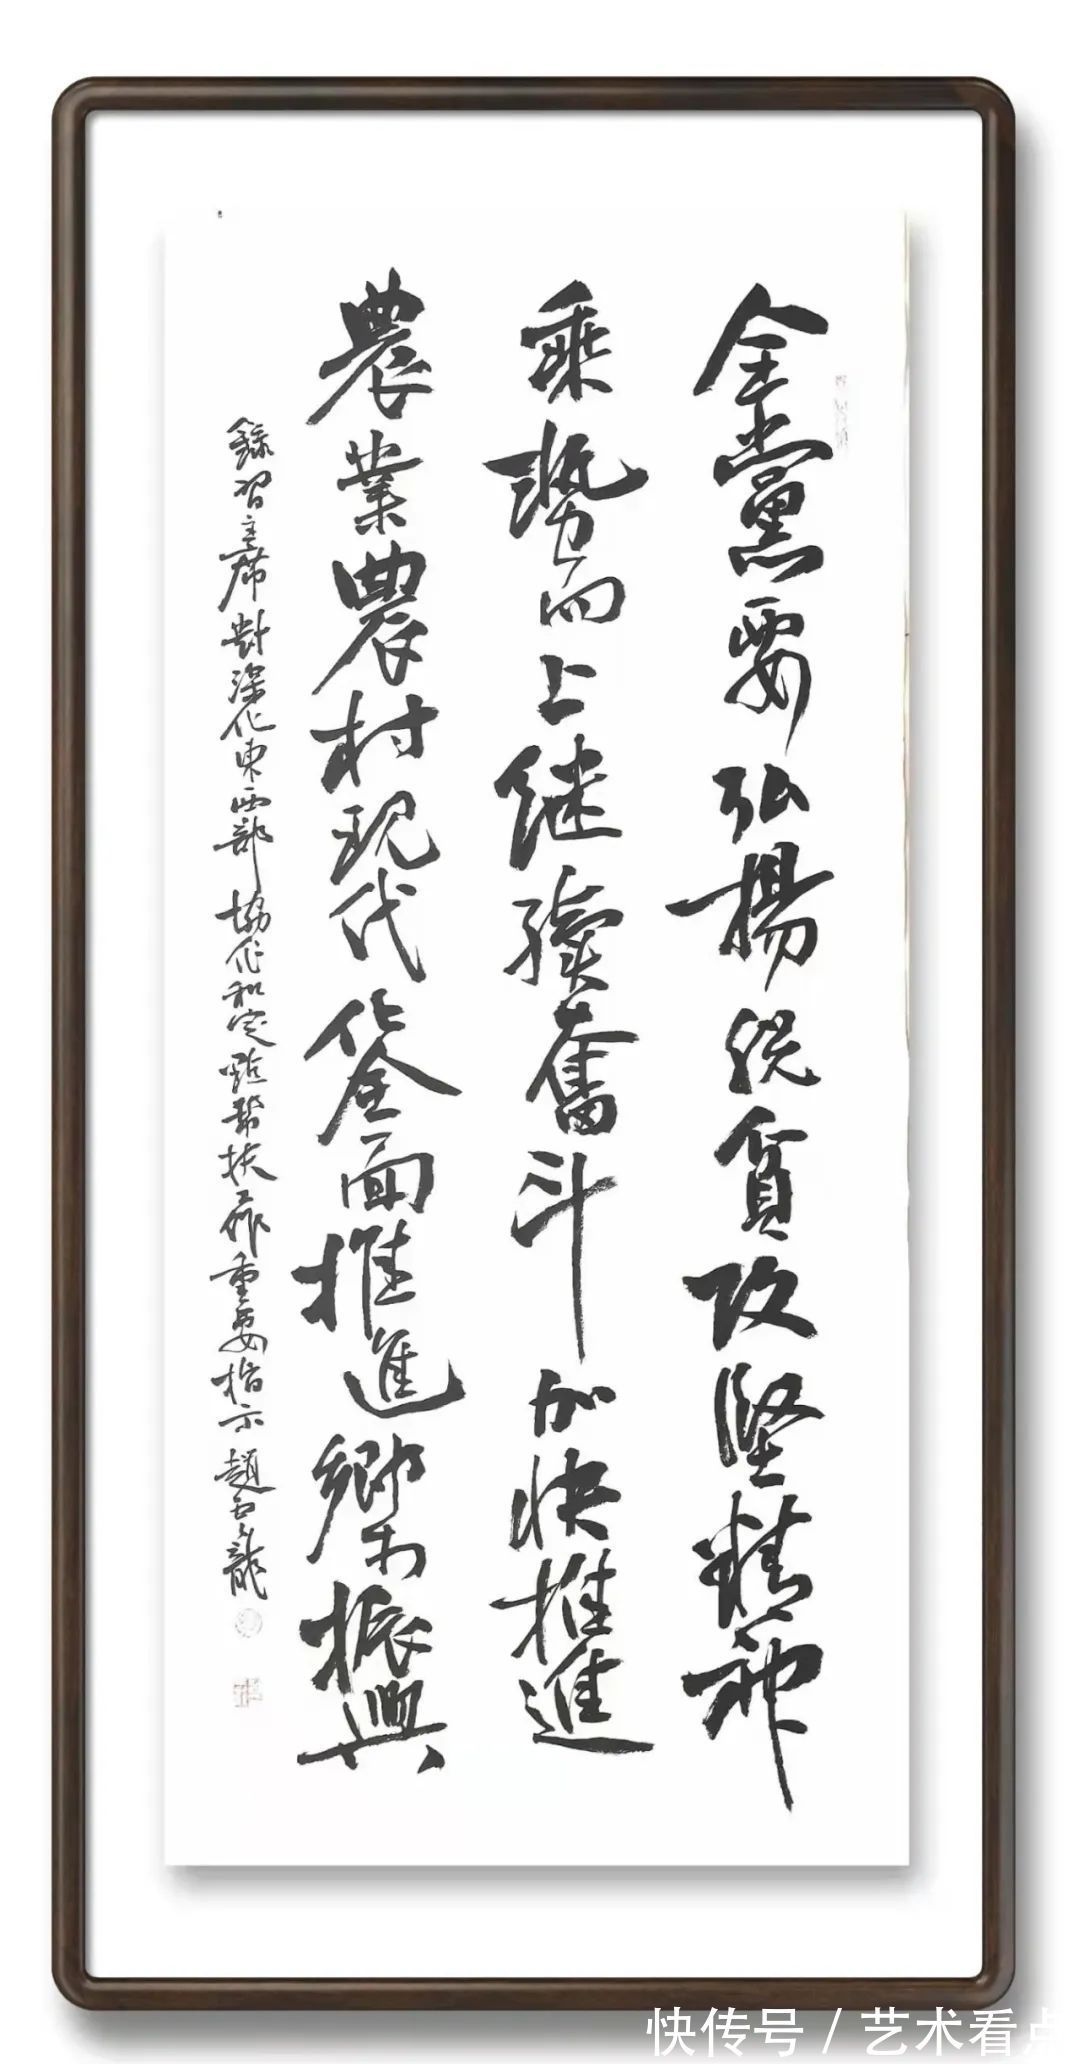 全黨要弘揚脱貧攻堅精神
乘勢而上継續奮斗加快推進
農業農村現代化全面推進鄉村振興
錄習主席對深化東西部協作和定點幫扶工作重要指示趙龍
快传号 / 艺术看点